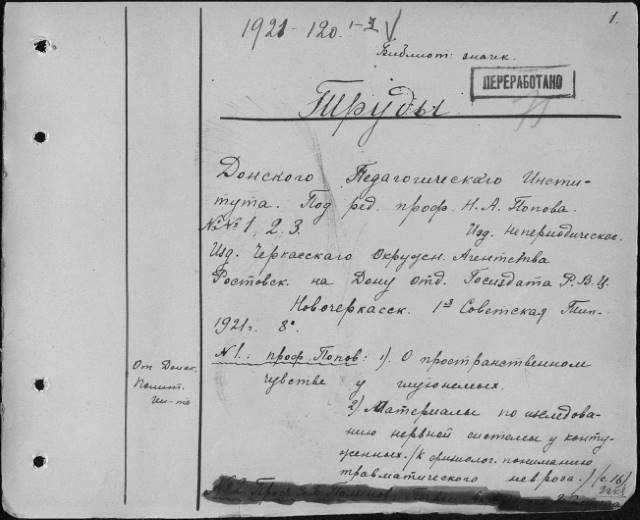 1.
1921-120. 1-3 V
Библиот. значк.
ПЕРЕРАБОТАНО
Труды
Донского Педагогическаго Инсти-
тута. Под ред. проф. Н.А. Попова.
№№ 1, 2, 3. Изд. Непериодическое.
Изд. Черкасскаго Окружн. Агентства
Ростовск. на Дону отд. Госиздата Р.В.Ц.
Новочеркасск. 1ª Советская Тип.
1921г. 8°.
№1: проф. Попов: 1). О пространственном
чувстве у глухонемых.
2) Материалы по изследова-
нию нервной системы у конту-
женных. /К физиолог. пониманию
травматического невроза./ (с.16)
От Донск.
Ин-та